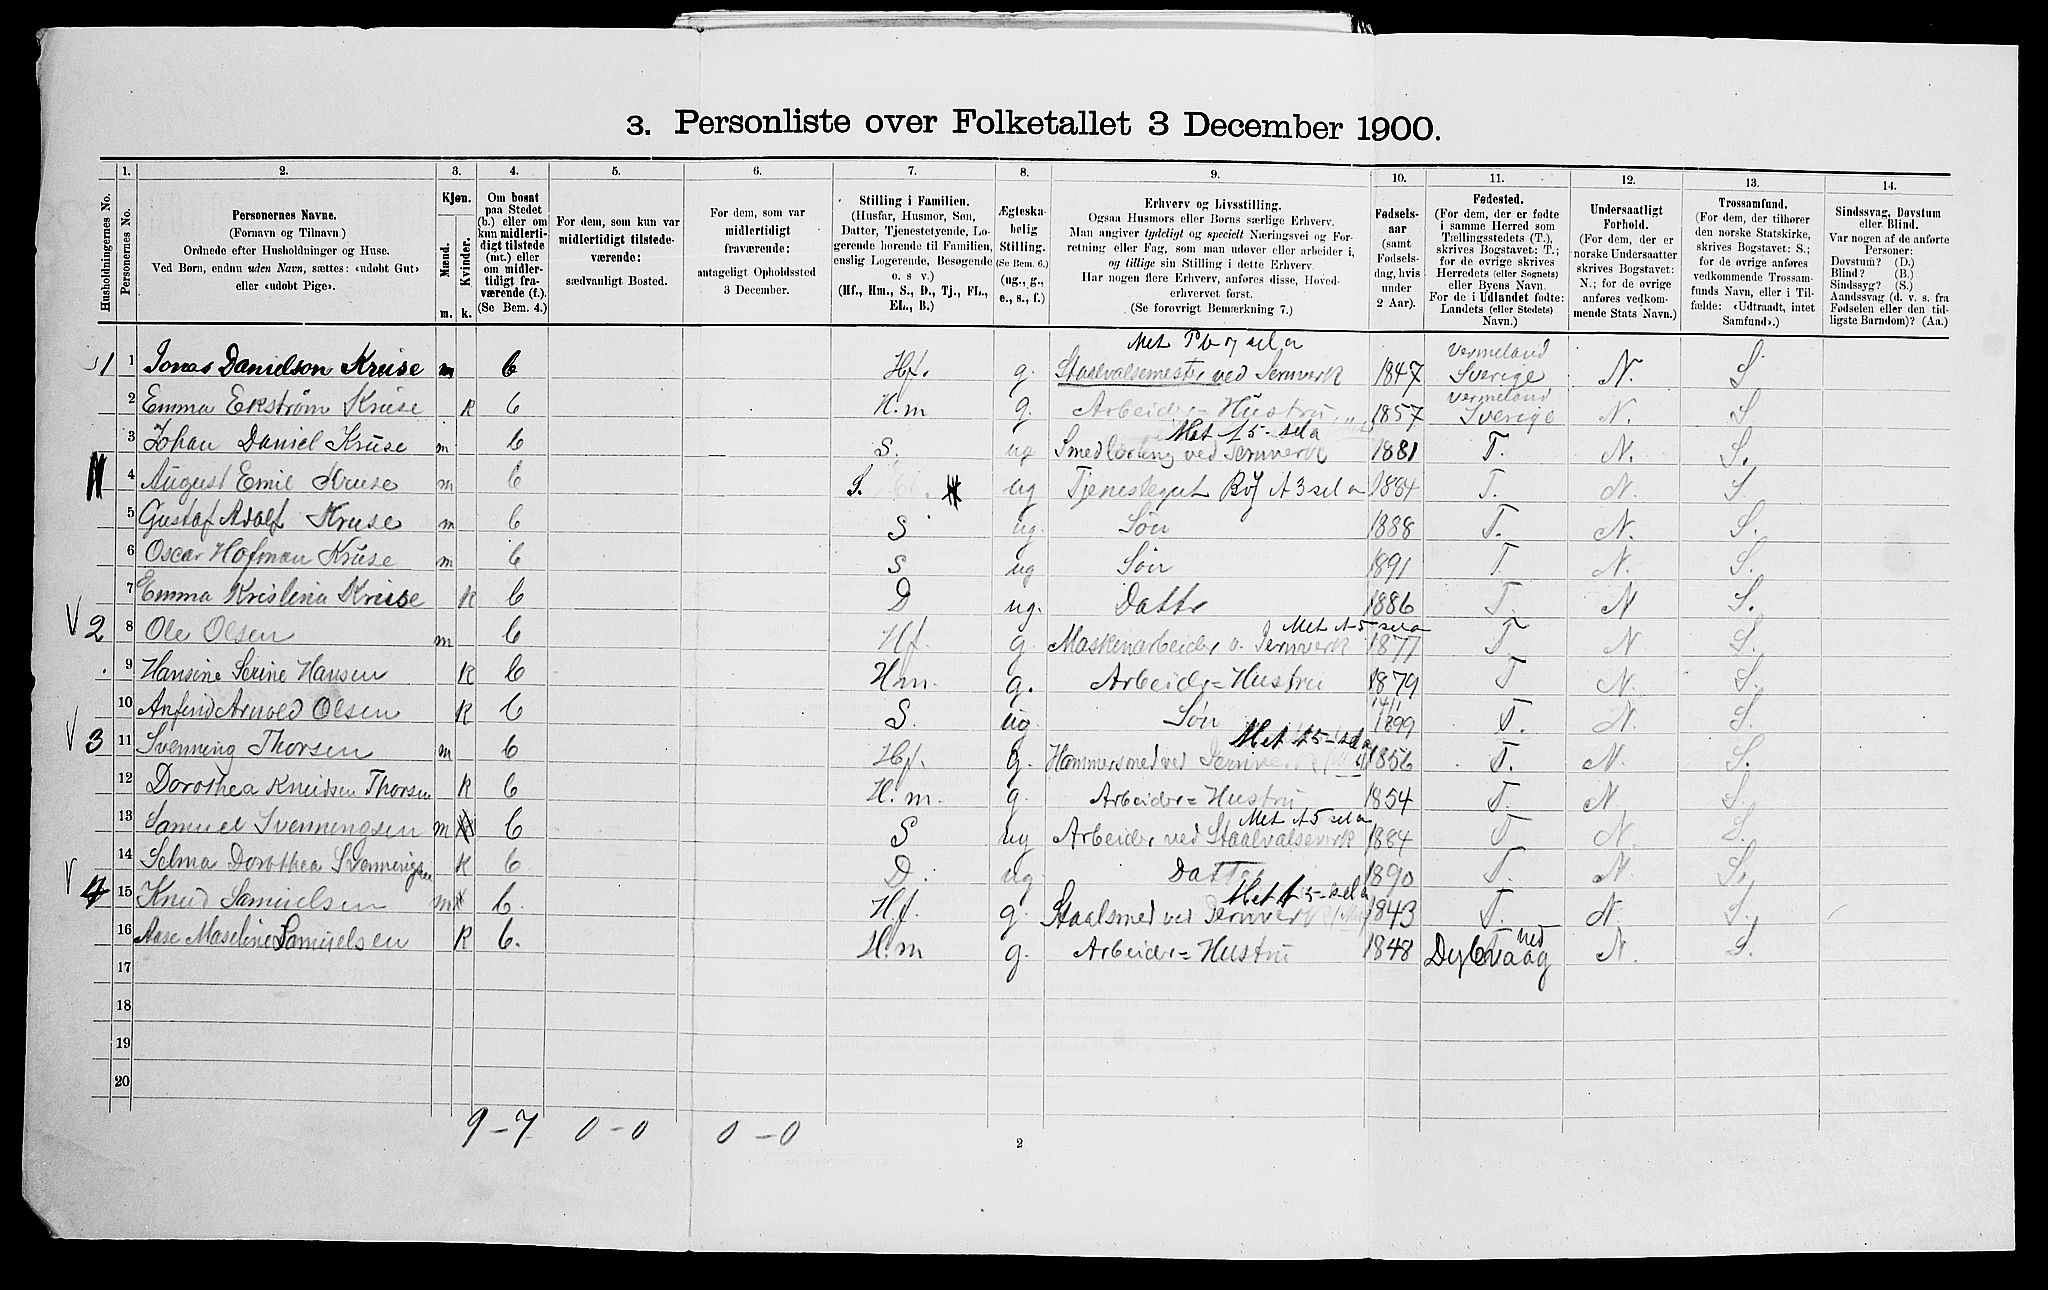 3. Personliste over Folketallet 3 December 1900.
1. 2. 3. 4. 5. 6. 7. 8. 9. 10. 11. 12. 13. 14.
Husholdningernes No.
Personernes No.
Personernes Navne.
(Fornavn og Tilnavn)
Ordnede efter Husholdninger og Huse.
Ved Børn, endnu uden Navn, sættes: «udobt Gut»
eller «udobt Pige».
Kjøn.
Mænd.
Kvinder.
m. k.
Om bosat
paa Stedet
(b.) eller om
kun midlerti-
digt tilstede
(mt.) eller
om midler-
tidigt fra-
værende (f.).
(Se Bem. 4.)
For dem, som kun var
midlertidigt tilstede-
værende:
sædvanligt Bosted.
For dem, som var
midlertidigt
fraværende:
antageligt Opholdssted
3 December.
Stilling i Familien.
(Husfar, Husmor, Søn,
Datter, Tjenestetyende, Lo-
gerende hørende til Familien,
enslig Logerende, Besøgende
o. s v.)
(Hf., Hm., S., D., Tj., FL.,
EL., B.)
Ægteska-
belig
Stilling.
(Se Bem. 6.)
(ug., g.,
e., s., f.)
Erhverv og Livsstilling.
Ogsaa Husmors eller Børns særlige Erhverv.
Man angiver tydeligt og specielt Næringsvei og For-
retning eller Fag, som man udøver eller arbeider i,
og tillige sin Stilling i dette Erhverv.
Har nogen flere Erhverv, anføres disse, Hoved-
erhvervet først.
(Se forøvrigt Bemærkning 7.)
Fødsels-
aar
(samt
Fødsels-
dag, hvis
under
2 Aar).
Fødested.
(For dem, der er fødte
i samme Herred som
Tællingsstedets (T.),
skrives Bogstavet: T.;
for de øvrige skrives
Herredets (eller Sognets)
eller Byens Navn.
For de i Udlandet fødte:
Landets (eller Stedets)
Navn.)
Undersaatligt
Forhold.
(For dem, der er
norske Undersaatter
skrives Bogstavet:
N.; for de øvrige
anføres vedkom-
mende Stats Navn.)
Trossamfund.
(For dem, der tilhører
den norske Statskirke,
skrives Bogstavet: S.;
for de øvrige anføres
vedkommende Trossam-
funds Navn, eller i Til-
fælde: «Udtraadt, intet
Samfund».)
Sindssvag, Døvstum
eller Blind.
Var nogen af de anførte
Personer:
Døvstum? (D.)
Blind? (B.)
Sindssyg? (S.)
Aandssvag (d. v. s. fra
Fødselen eller den tid-
ligste Barndom)? (Aa.)
1 1 Jonas Danielson Kruse m b Hf. g. Staalvalsemester ved Jernverk 1847 Vermeland Sverige N. S
2 Emma Ekstrøm Kruse k b H.m g. Arbeider=Hustru 1857 Vermeland Sverige N. S
3 Johan Daniel Kruse m b S. ug Smedlærling ved Jernverk 1881 T. N. S.
4 August Emil Kruse m b S. ug Tjenestegut 1884 T. N. S.
5 Gustaf Adolf Kruse m b S ug. Søn 1888 T. N. S.
6 Oscar Hofman Kruse m b S ug Søn 1891 T. N. S.
7 Emma Kristina Kruse k b D ug. Datte 1886 T. N S.
2 8 Ole Olsen m b Hf. g. Maskinarbeider v. Jernverk 1877 T. N S.
9 Hansine Serine Hansen k b H.m. g. Arbeider=Hustru 1879 T N. S.
10 Anfind Arnold Olsen k b S. ug. Søn 1899 T. N. S.
3 11 Svenning Thorsen m b Hf. g. Hammersmed ved Jernverk 1856 T. N. S.
12 Dorothea Knudsen Thorsen k b H.m. g. Arbeider=Hustru 1854 T. N S.
13 Samuel Svenningsen m b S ug Arbeider ved Staalvalseverk 1884 T N. S.
14 Selma Dorothea Svenningsen k b D. ug. Datter 1890 T. N. S.
4 15 Knud Samuelsen m b. Hf. g. Staalsmed ved Jernverk 1843 T. N. S.
16 Aase Maseline Samuelsen k b. H.m g. Arbeider=Hustru 1848 Dybvaag N. S.
17
18
19
20
9-7 0-0 0-0
2